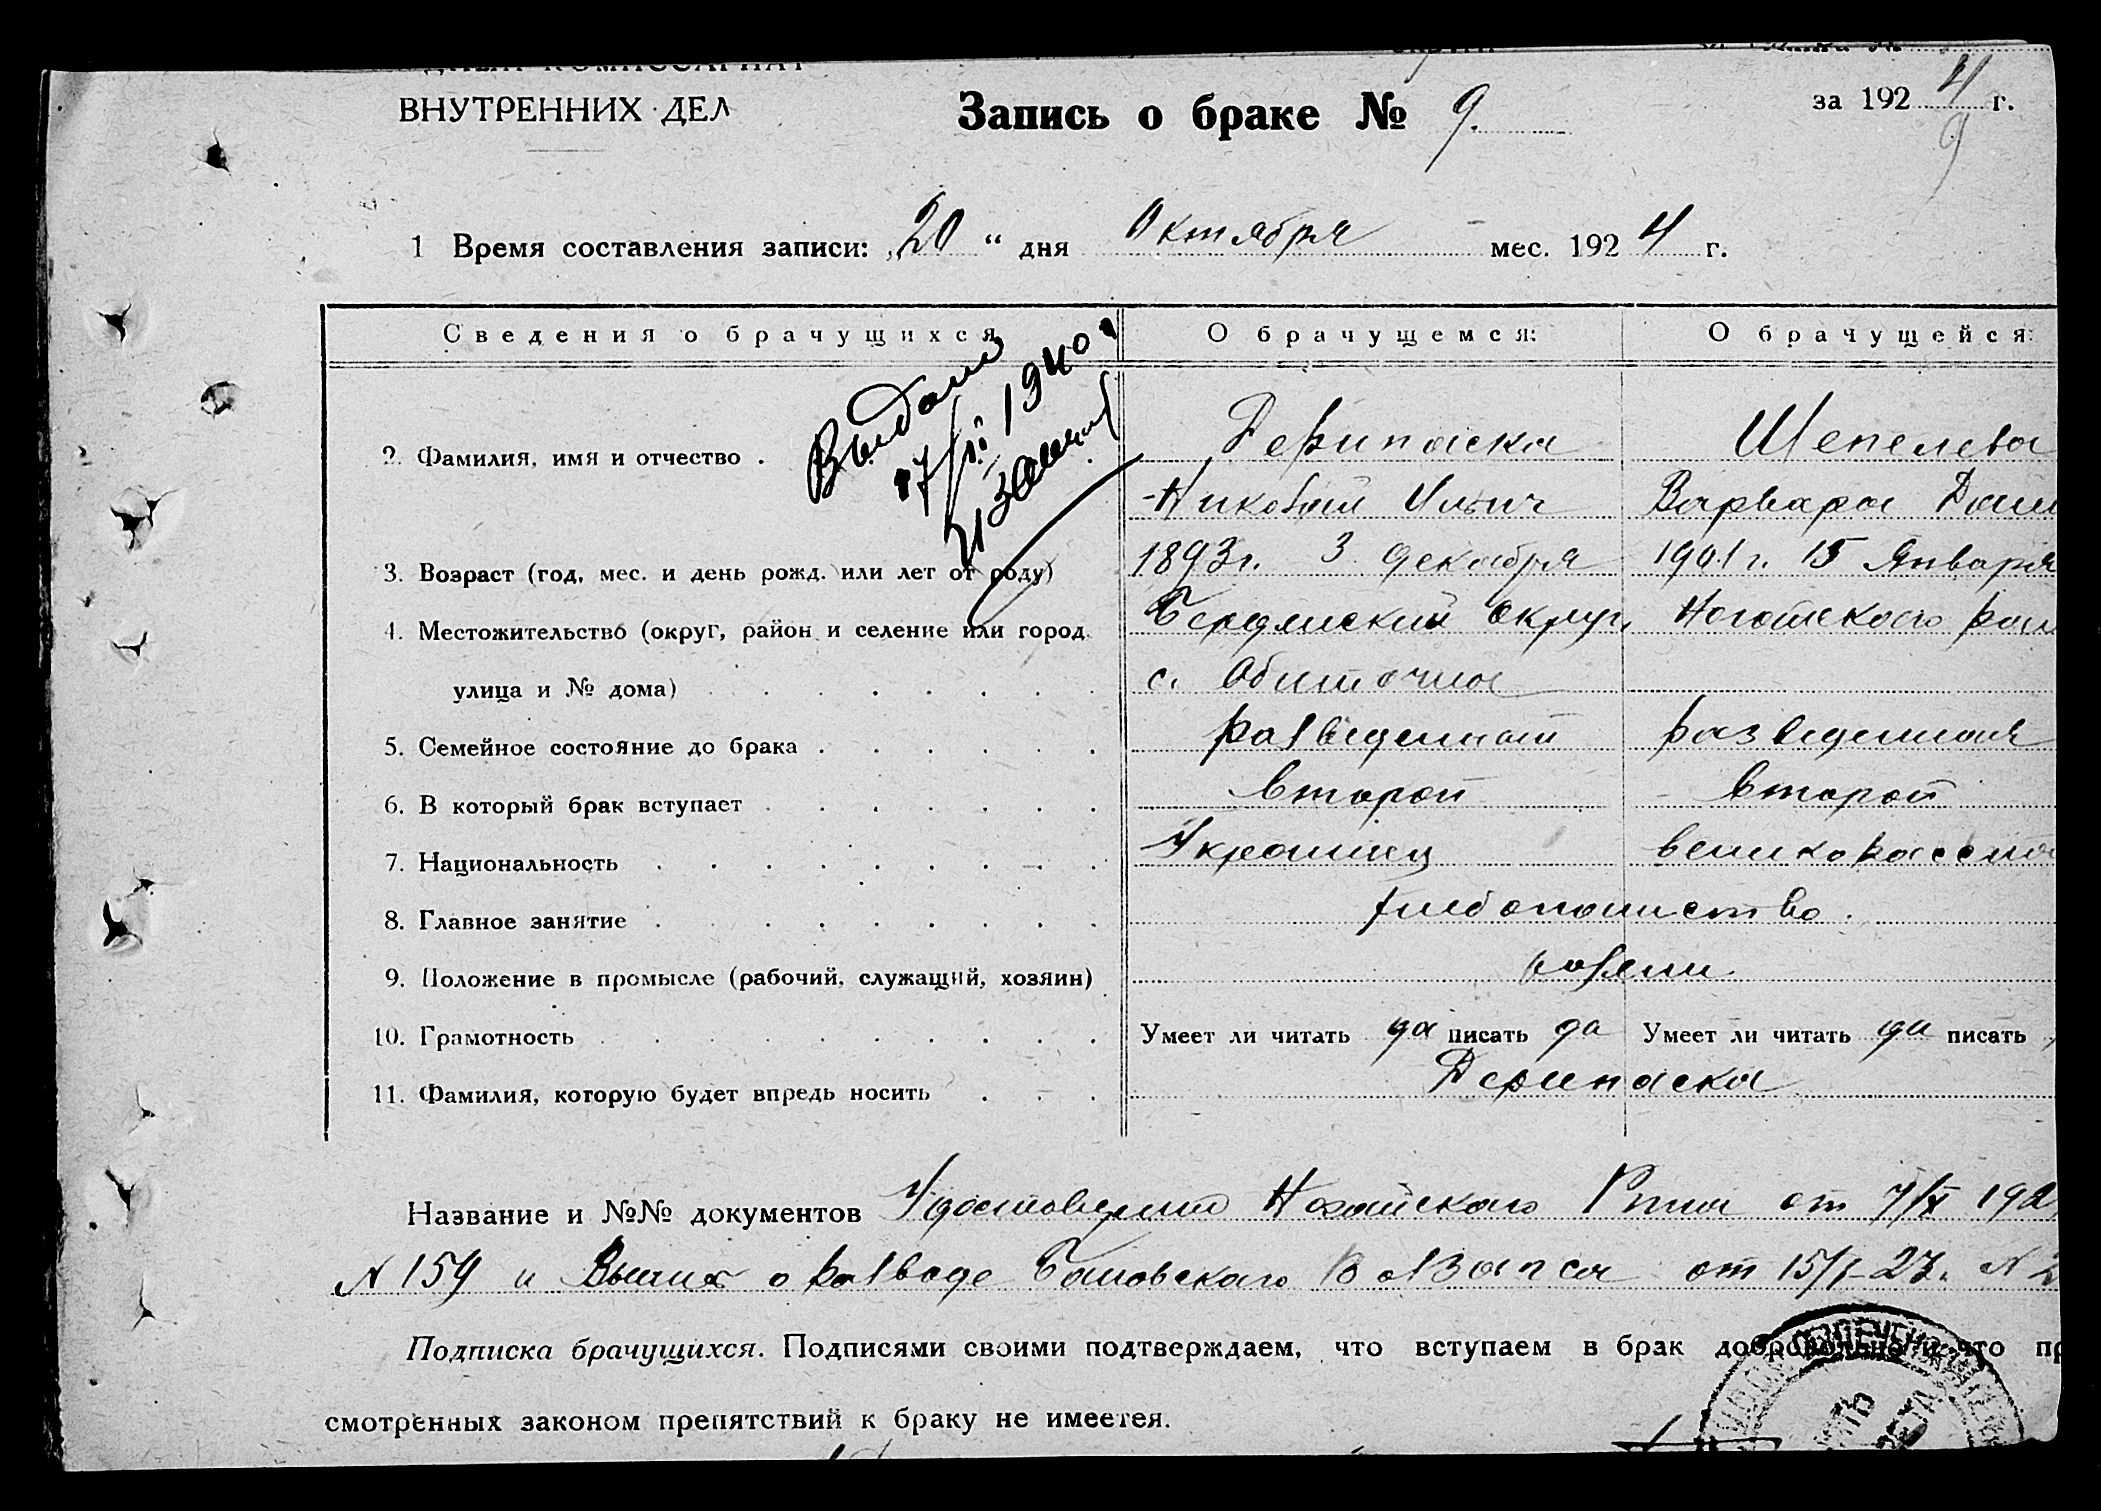 ВНУТРЕННИХ ДЕЛ
Запись о браке № 9.
за 1924 г.
9
1 Время составления записи: „20“ дня Октября мес. 1924 г.
Сведения о брачущихся
О брачущемся:
О брачущейся:
Выдано
1940 г
2. Фамилия, имя и отчество
Дерипаска
Шепелева
Ильич
Варвара
3. Возраст (год, мес. и день рожд. или лет от роду)
1893 г. 3 декабря
1901 г. 15 Января
4. Местожительство (округ, район и селение или город,
Бердянский округ,
Ногайского
улица и № дома)
с. Обиточное
5. Семейное состояние до брака
разведенный
разведенная
6. В который брак вступает
второй
второй
7. Национальность
Украинец
8. Главное занятие
хлебопашество.
9. Положение в промысле (рабочий, служащий, хозяин)
хозяин
10. Грамотность
Умеет ли читать да писать да
Умеет ли читать да писать
11. Фамилия, которую будет впредь носить
Дерипаска
Название и №№ документов Ногайского от 192
N 159 и о разводе от N 2
Подписка брачущихся. Подписями своими подтверждаем, что вступаем в брак добровольно и что пр
смотренных законом препятствий к браку не имеется.